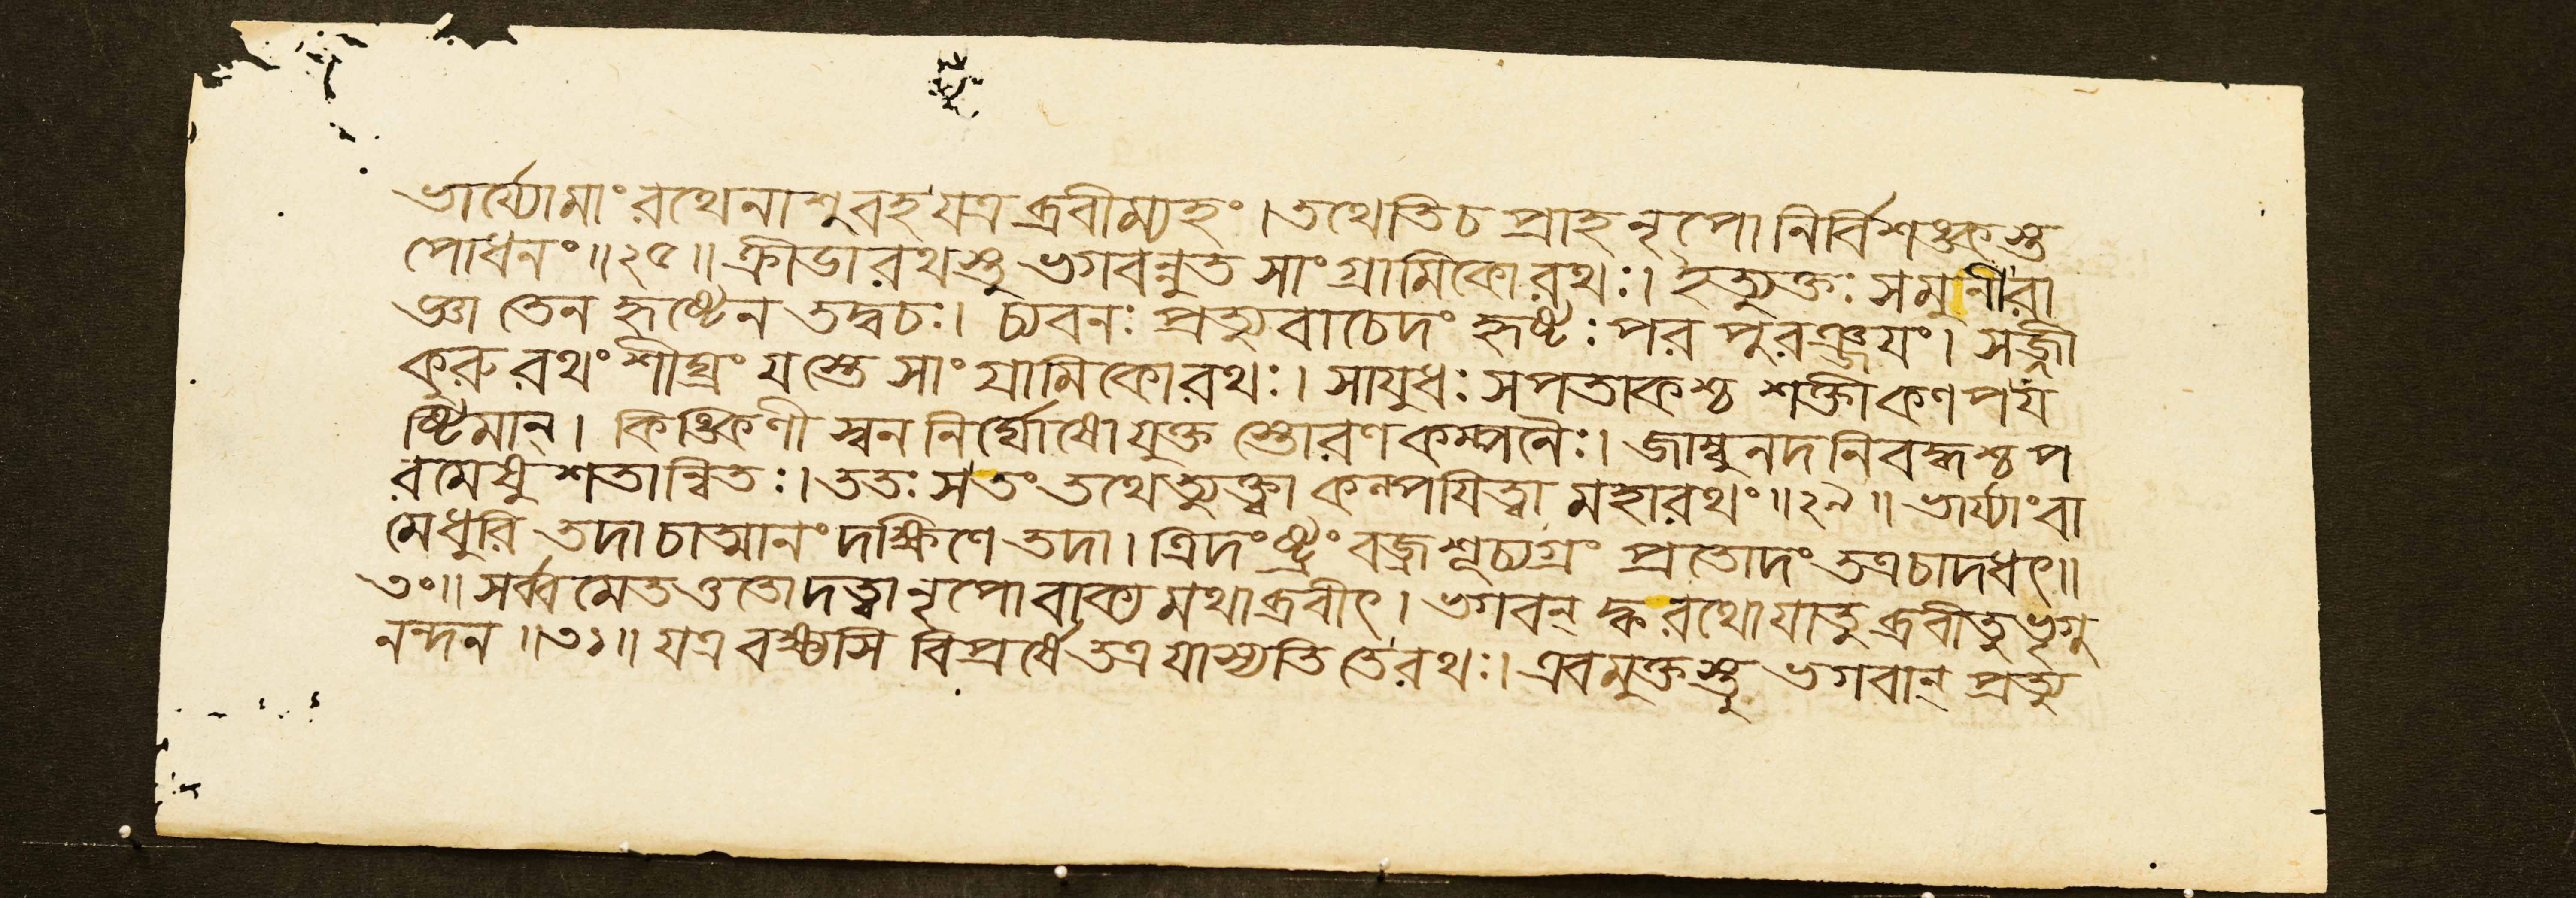 ভার্য্যোমাং রথেনাশুবহ যত্র ব্রবীম্যহং। তথেতি চ প্রাহ নৃপো নির্বিশঙ্কস্ত
পোধনং॥২৫॥ ক্রীডারথস্তু ভগবন্নুত সাংগ্রামিকোরথঃ। ইত্যুক্তঃ সমুনীরা
জ্ঞা তেন হৃষ্টেন তদ্বচঃ। চ্যবনঃ প্রত্যুবাচেদং হৃষ্টঃ পর পুরঞ্জযং। সজ্জী
কুরু রথং শীঘ্রং যস্তে সাং গ্রামিকোরথঃ। সাযুধঃ সপতাকশ্চ শক্তীকণপয
ষ্টিমান্। কিঙ্কিণী স্বন নির্ঘোষো যুক্ত স্তোরণ কল্পনৈঃ। জাম্বুনদ নিবদ্ধশ্চ প
রমেষু শতান্বিতঃ। ততঃ স তং তথেত্যুক্ত্বা কল্পযিত্বা মহারথং॥২৯॥ ভার্য্যাং বা
মে ধুরি তদা চাত্মানং দক্ষিণে তদা। ত্রিদংষ্ট্রং বজ্রশূচ্যগ্রং প্রতোদং তত্র চাদধৎ॥
৩০॥ সর্ব্বমেতত্ততোদত্ত্বা নৃপো বাক্য মথাব্রবীৎ। ভগবন্ ক্ব রথো যাতু ব্রবীতু ভৃগু
নন্দন॥৩১॥ যত্র বক্ষ্যসি বিপ্রর্ষে তত্র যাস্যতি তে রথঃ। এবমুক্তস্তু ভগবান্ প্রত্যু